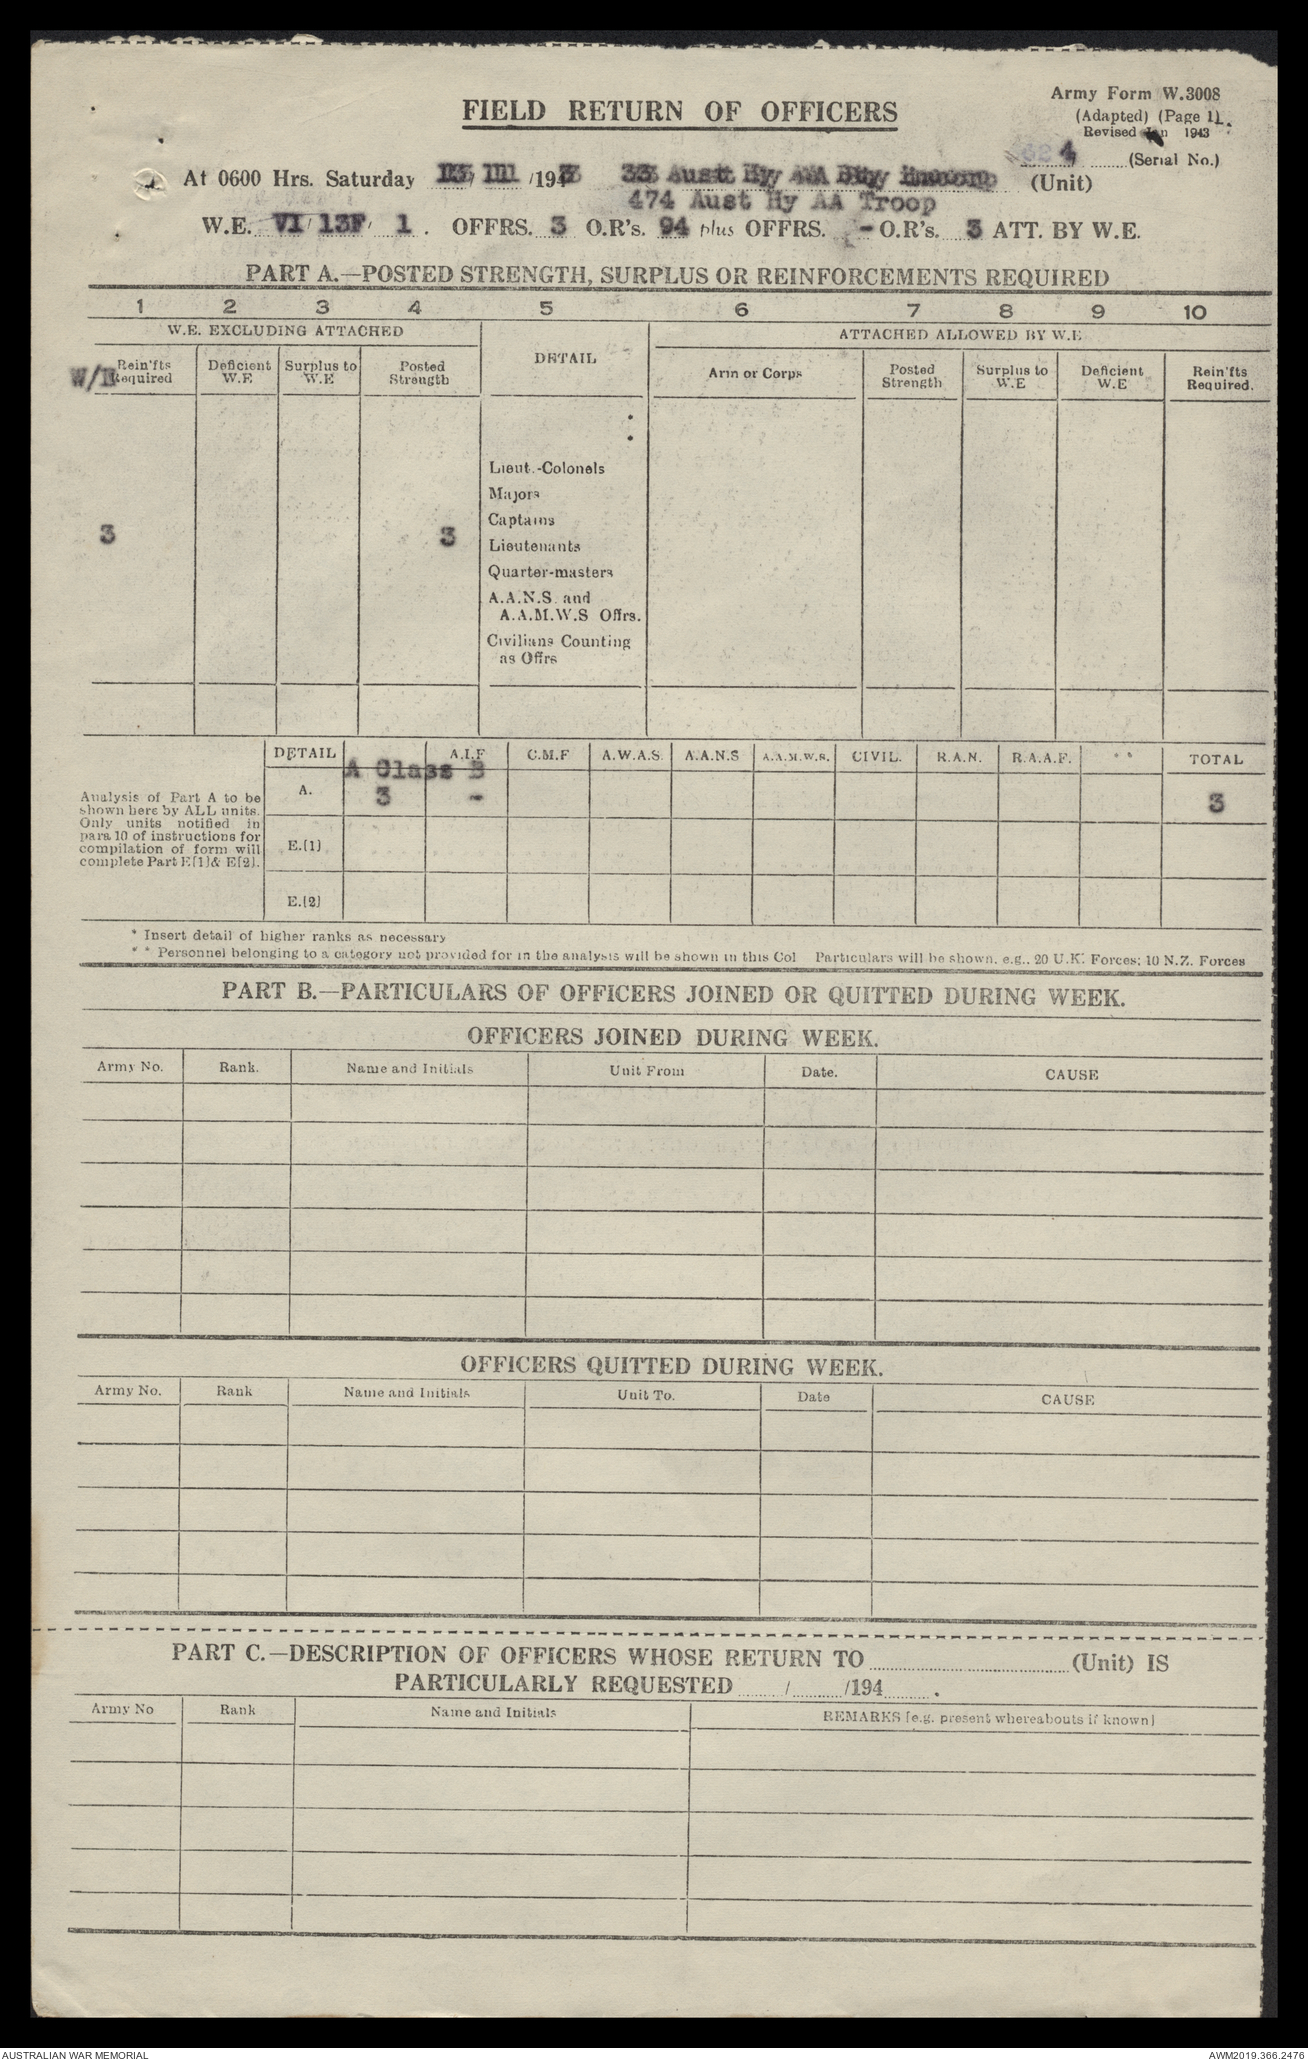 Army Form W.3008
FIELD RETURN OF OFFICERS
(Adapted) (Page 1).
Revised Jan 1943
624 (Serial No.)
At 0600 Hrs. Saturday /194 33 Aust Hy AA Bty (Unit)
474 Aust Hy AA Troop
W.E. VI/ 13F/ 1 . OFFRS. 3 O.R's. 94 plus OFFRS. - O.R's. 3 ATT. BY W.E.
PART A.—POSTED STRENGTH, SURPLUS OR REINFORCEMENTS REQUIRED
1 2 3 4 5 6 7 8 9 10
W.E. EXCLUDING ATTACHED
ATTACHED ALLOWED BY W.E
DETAIL
W/E
Rein'fts Required
Deficient W.E
Surplus to W.E
Posted Strength
Arm or Corps
Posted Strength
Surplus to W.E
Deficient W.E
Rein'fts Required.
Lieut.-Colonels
Majors
Captains
3 3 Lieutenants
Quarter-masters
A.A.N.S. and
A.A.M.W.S Offrs.
Civilians Counting
as Offrs
DETAIL A.I.F C.M.F A.W.A.S. A.A.N.S A.A.M.W.S. CIVIL. R.A.N. R.A.A.F. * * TOTAL
A Class B
A. 3 - 3
E.(1)
E.(2)
Analysis of Part A to be
shown here by ALL units.
Only units notified in
para 10 of instructions for
compilation of form will
complete Part E(1)& E(2).
* Insert detail of higher ranks as necessary
* * Personnel belonging to a category not provided for in the analysis will be shown in this Col Particulars will be shown. e.g.. 20 U.K. Forces; 10 N.Z. Forces
PART B.—PARTICULARS OF OFFICERS JOINED OR QUITTED DURING WEEK.
OFFICERS JOINED DURING WEEK.
Army No. Rank. Name and Initials Unit From Date. CAUSE
OFFICERS QUITTED DURING WEEK.
Army No. Rank Name and Initials Unit To. Date CAUSE
PART C.—DESCRIPTION OF OFFICERS WHOSE RETURN TO (Unit) IS
PARTICULARLY REQUESTED / /194 .
Army No Rank Name and Initials REMARKS [e.g. present whereabouts if known]
AUSTRALIAN WAR MEMORIAL AWM2019.366.2476